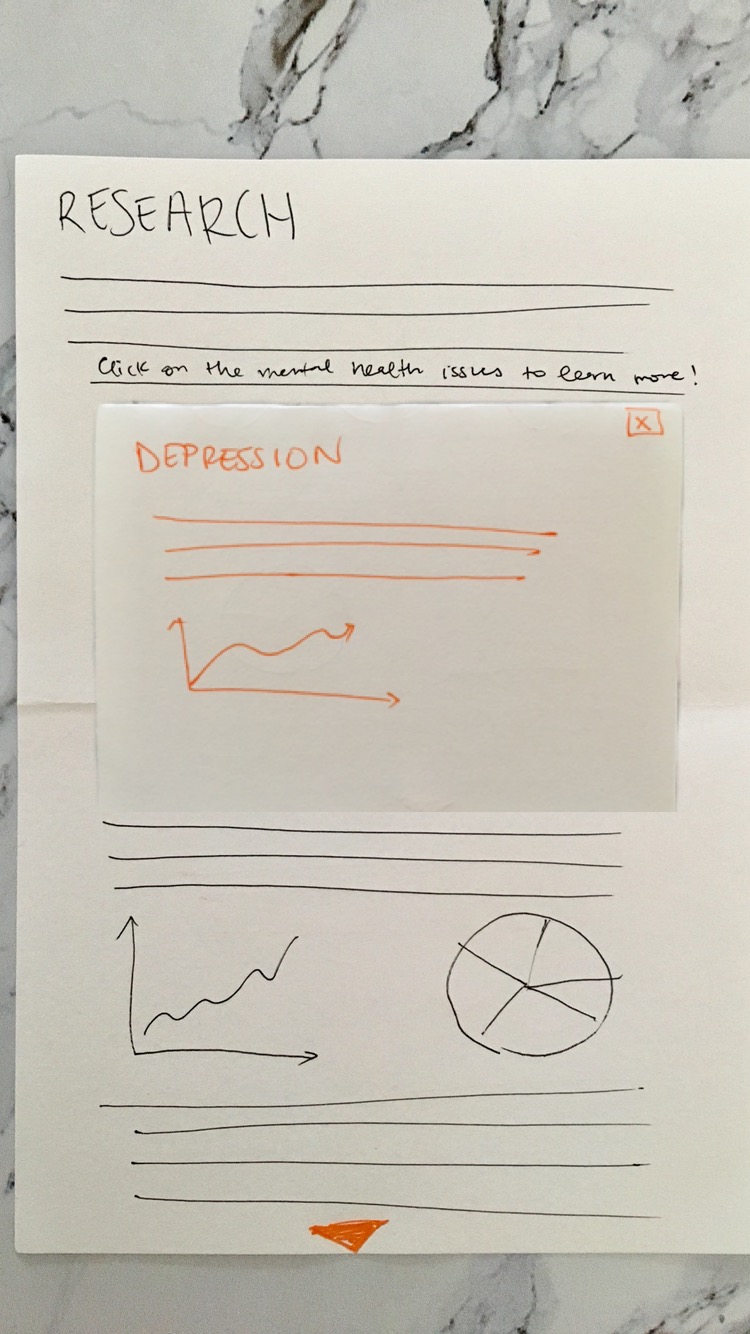 RESEARCH
Click on the mental health issues to learn more!
X
DEPRESSION